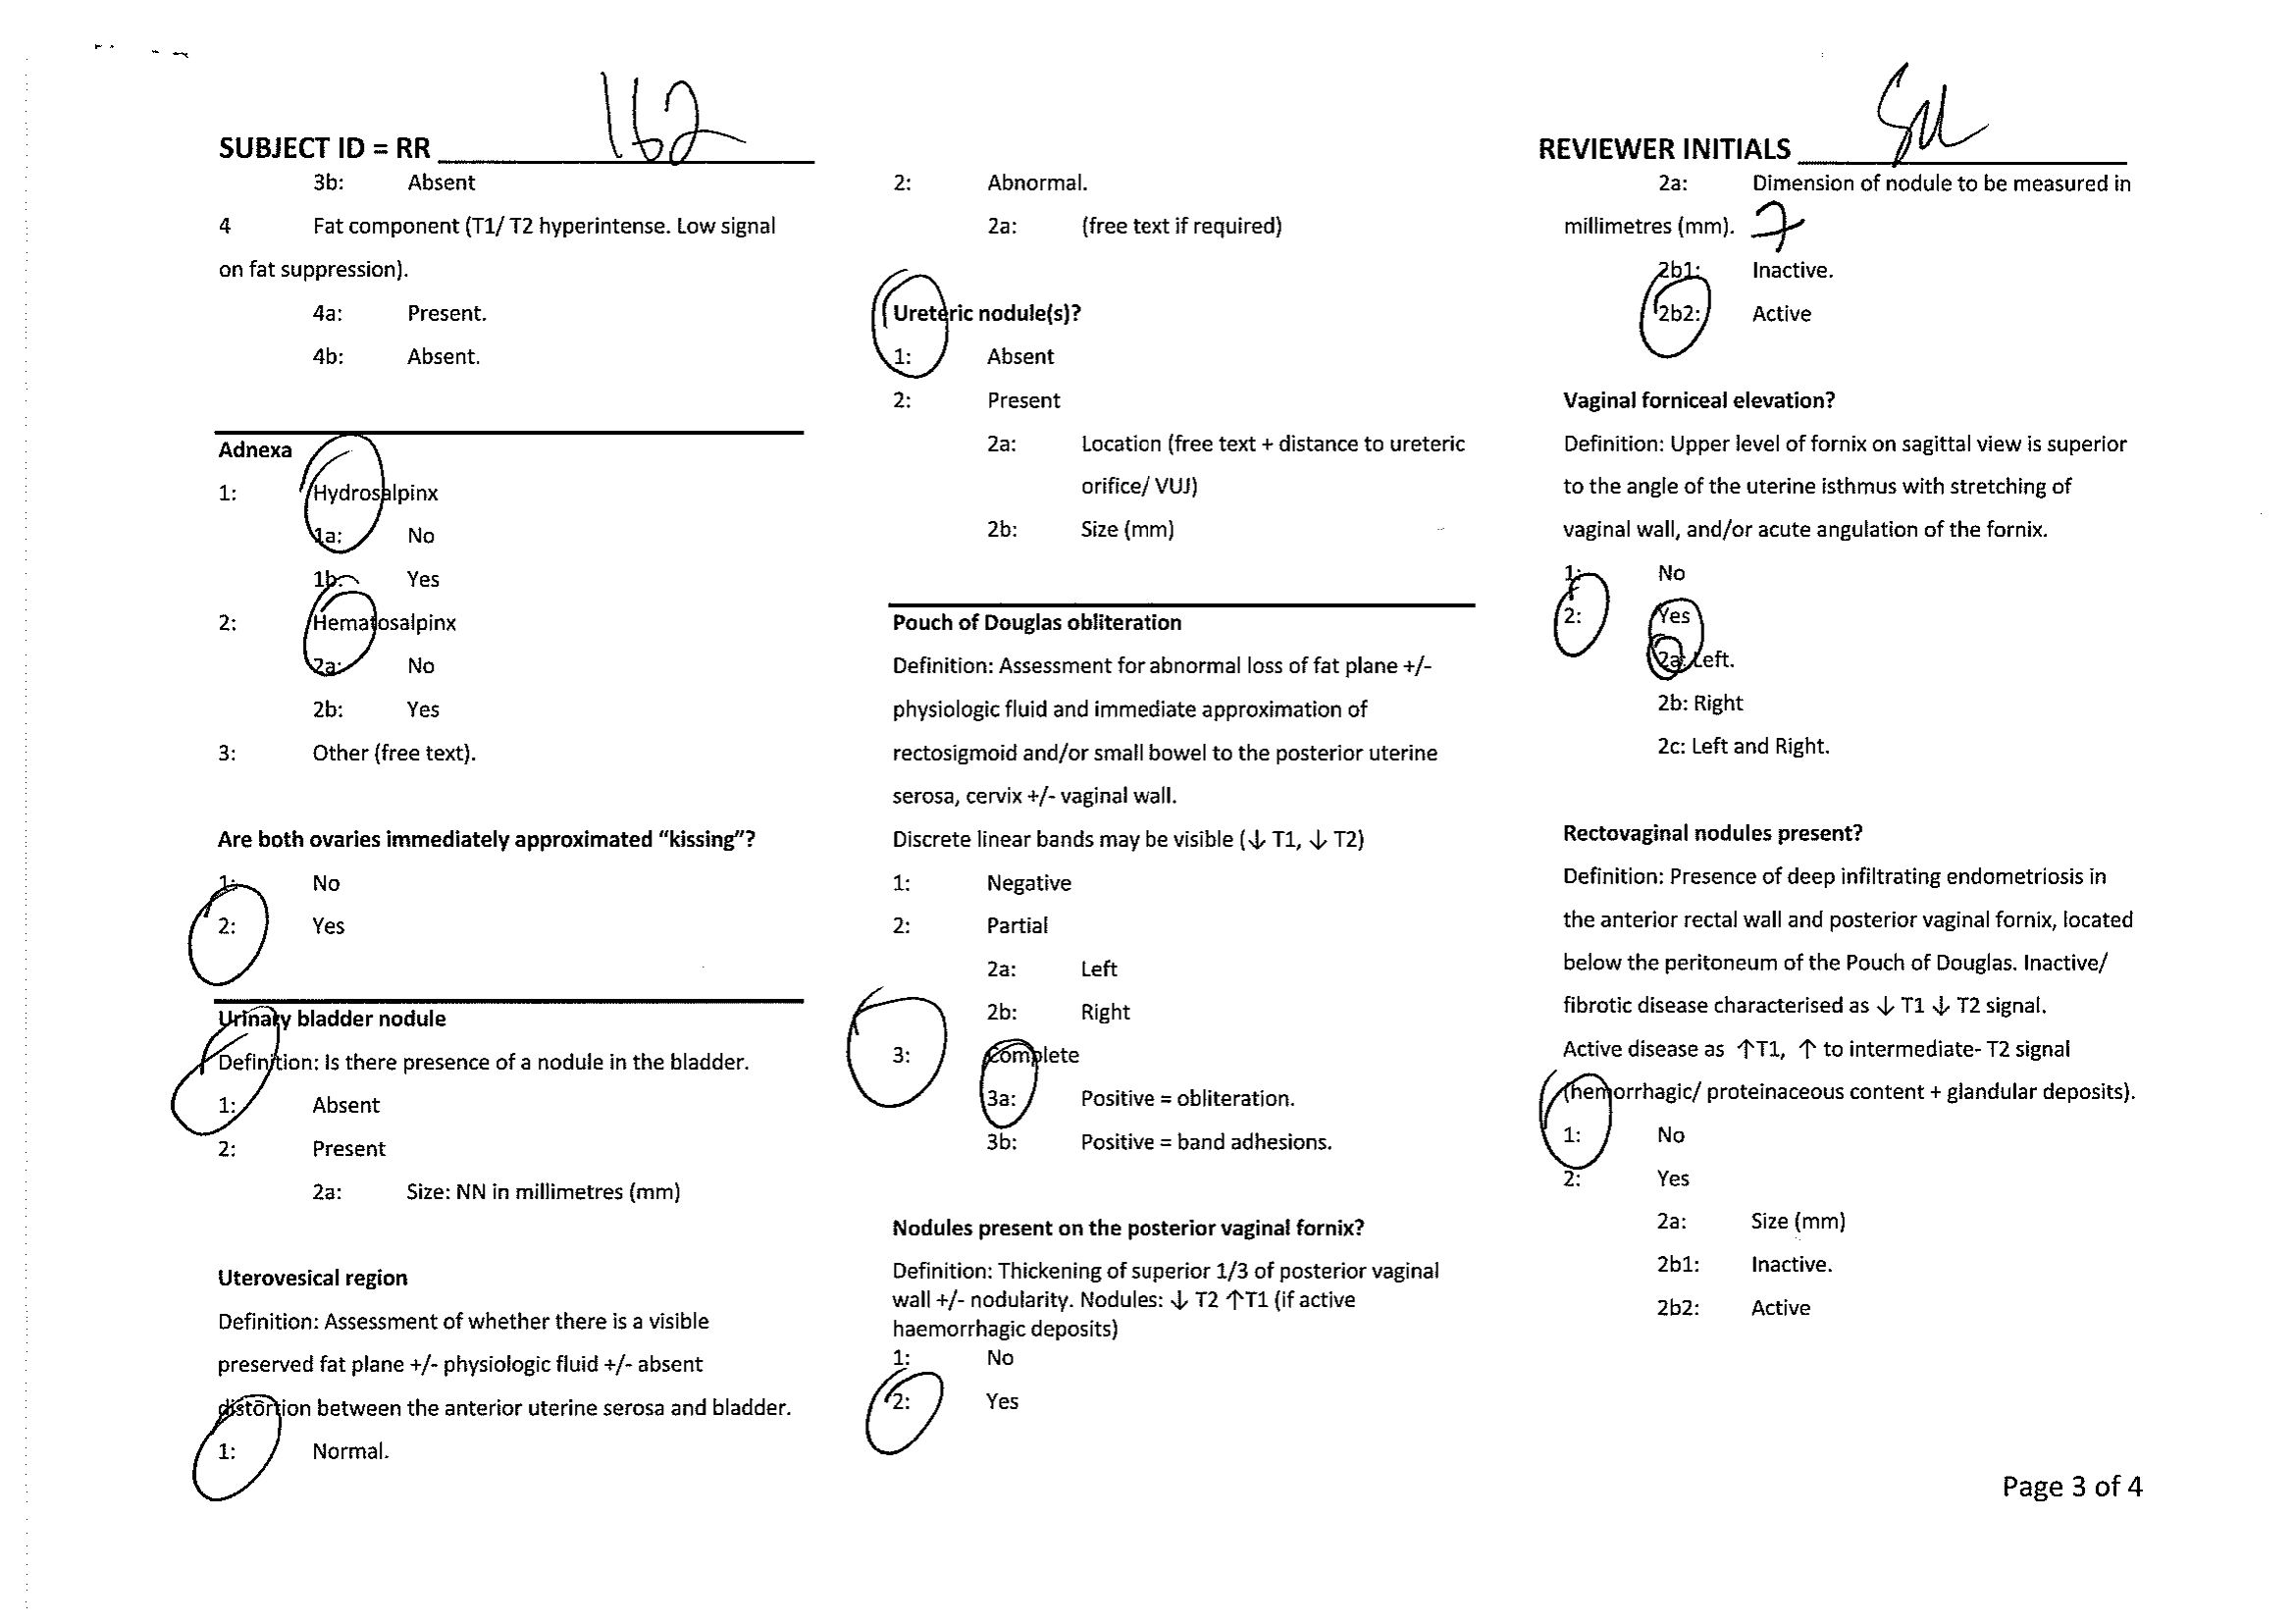 SUBJECT ID = RR 162
3b: Absent
4 Fat component (T1/ T2 hyperintense. Low signal
on fat suppression).
4a: Present.
4b: Absent.
Adnexa
1: Hydrosalpinx
1a: No
1b: Yes
2: Hematosalpinx
2a: No
2b: Yes
3: Other (free text).
Are both ovaries immediately approximated “kissing”?
1: No
2: Yes
Urinary bladder nodule
Definition: Is there presence of a nodule in the bladder.
1: Absent
2: Present
2a: Size: NN in millimetres (mm)
Uterovesical region
Definition: Assessment of whether there is a visible
preserved fat plane +/- physiologic fluid +/- absent
distortion between the anterior uterine serosa and bladder.
1: Normal.
2: Abnormal.
2a: (free text if required)
Ureteric nodule(s)?
1: Absent
2: Present
2a: Location (free text + distance to ureteric
orifice/ VUJ)
2b: Size (mm)
Pouch of Douglas obliteration
Definition: Assessment for abnormal loss of fat plane +/-
physiologic fluid and immediate approximation of
rectosigmoid and/or small bowel to the posterior uterine
serosa, cervix +/- vaginal wall.
Discrete linear bands may be visible (↓ T1, ↓ T2)
1: Negative
2: Partial
2a: Left
2b: Right
3: Complete
3a: Positive = obliteration.
3b: Positive = band adhesions.
Nodules present on the posterior vaginal fornix?
Definition: Thickening of superior 1/3 of posterior vaginal
wall +/- nodularity. Nodules: ↓ T2 ↑T1 (if active
haemorrhagic deposits)
1: No
2: Yes
REVIEWER INITIALS
2a: Dimension of nodule to be measured in
millimetres (mm). 7
2b1: Inactive.
2b2: Active
Vaginal forniceal elevation?
Definition: Upper level of fornix on sagittal view is superior
to the angle of the uterine isthmus with stretching of
vaginal wall, and/or acute angulation of the fornix.
1: No
2: Yes
2a: Left.
2b: Right
2c: Left and Right.
Rectovaginal nodules present?
Definition: Presence of deep infiltrating endometriosis in
the anterior rectal wall and posterior vaginal fornix, located
below the peritoneum of the Pouch of Douglas. Inactive/
fibrotic disease characterised as ↓ T1 ↓ T2 signal.
Active disease as ↑T1, ↑ to intermediate- T2 signal
(hemorrhagic/ proteinaceous content + glandular deposits).
1: No
2: Yes
2a: Size (mm)
2b1: Inactive.
2b2: Active
Page 3 of 4